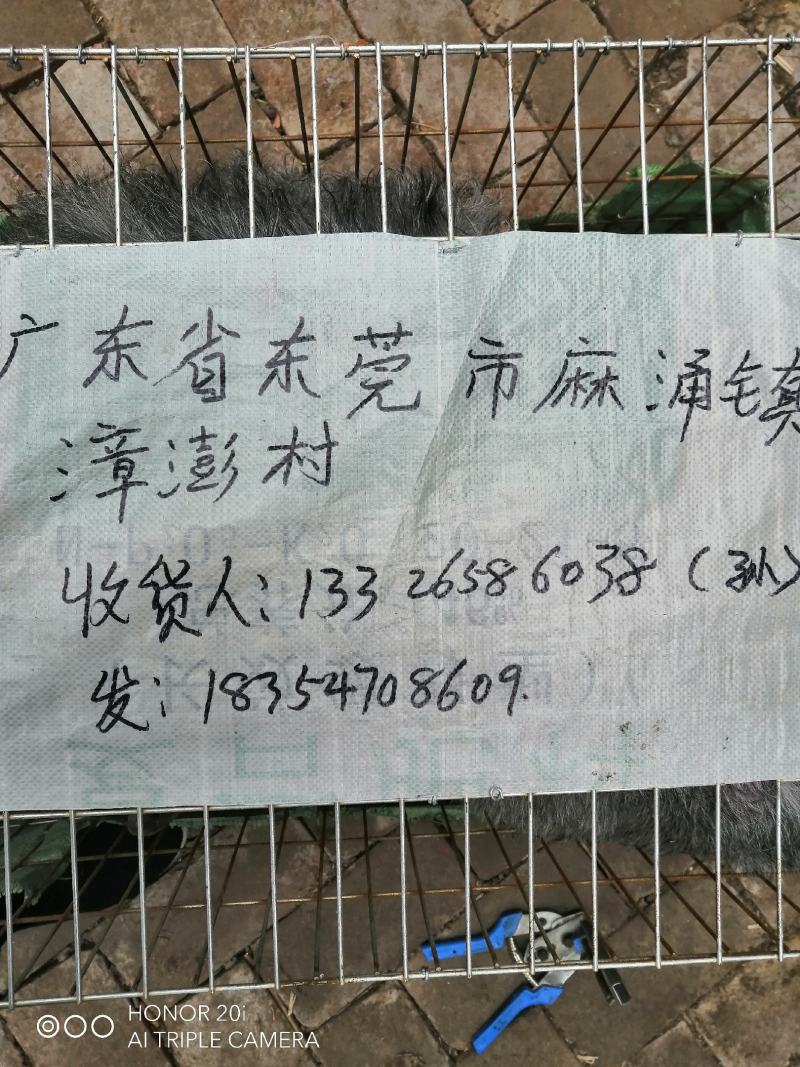 广东省东莞市麻涌镇
漳澎村
收货人:13326586038(孙)
发:18354708609.
HONOR 20i
AI TRIPLE CAMERA